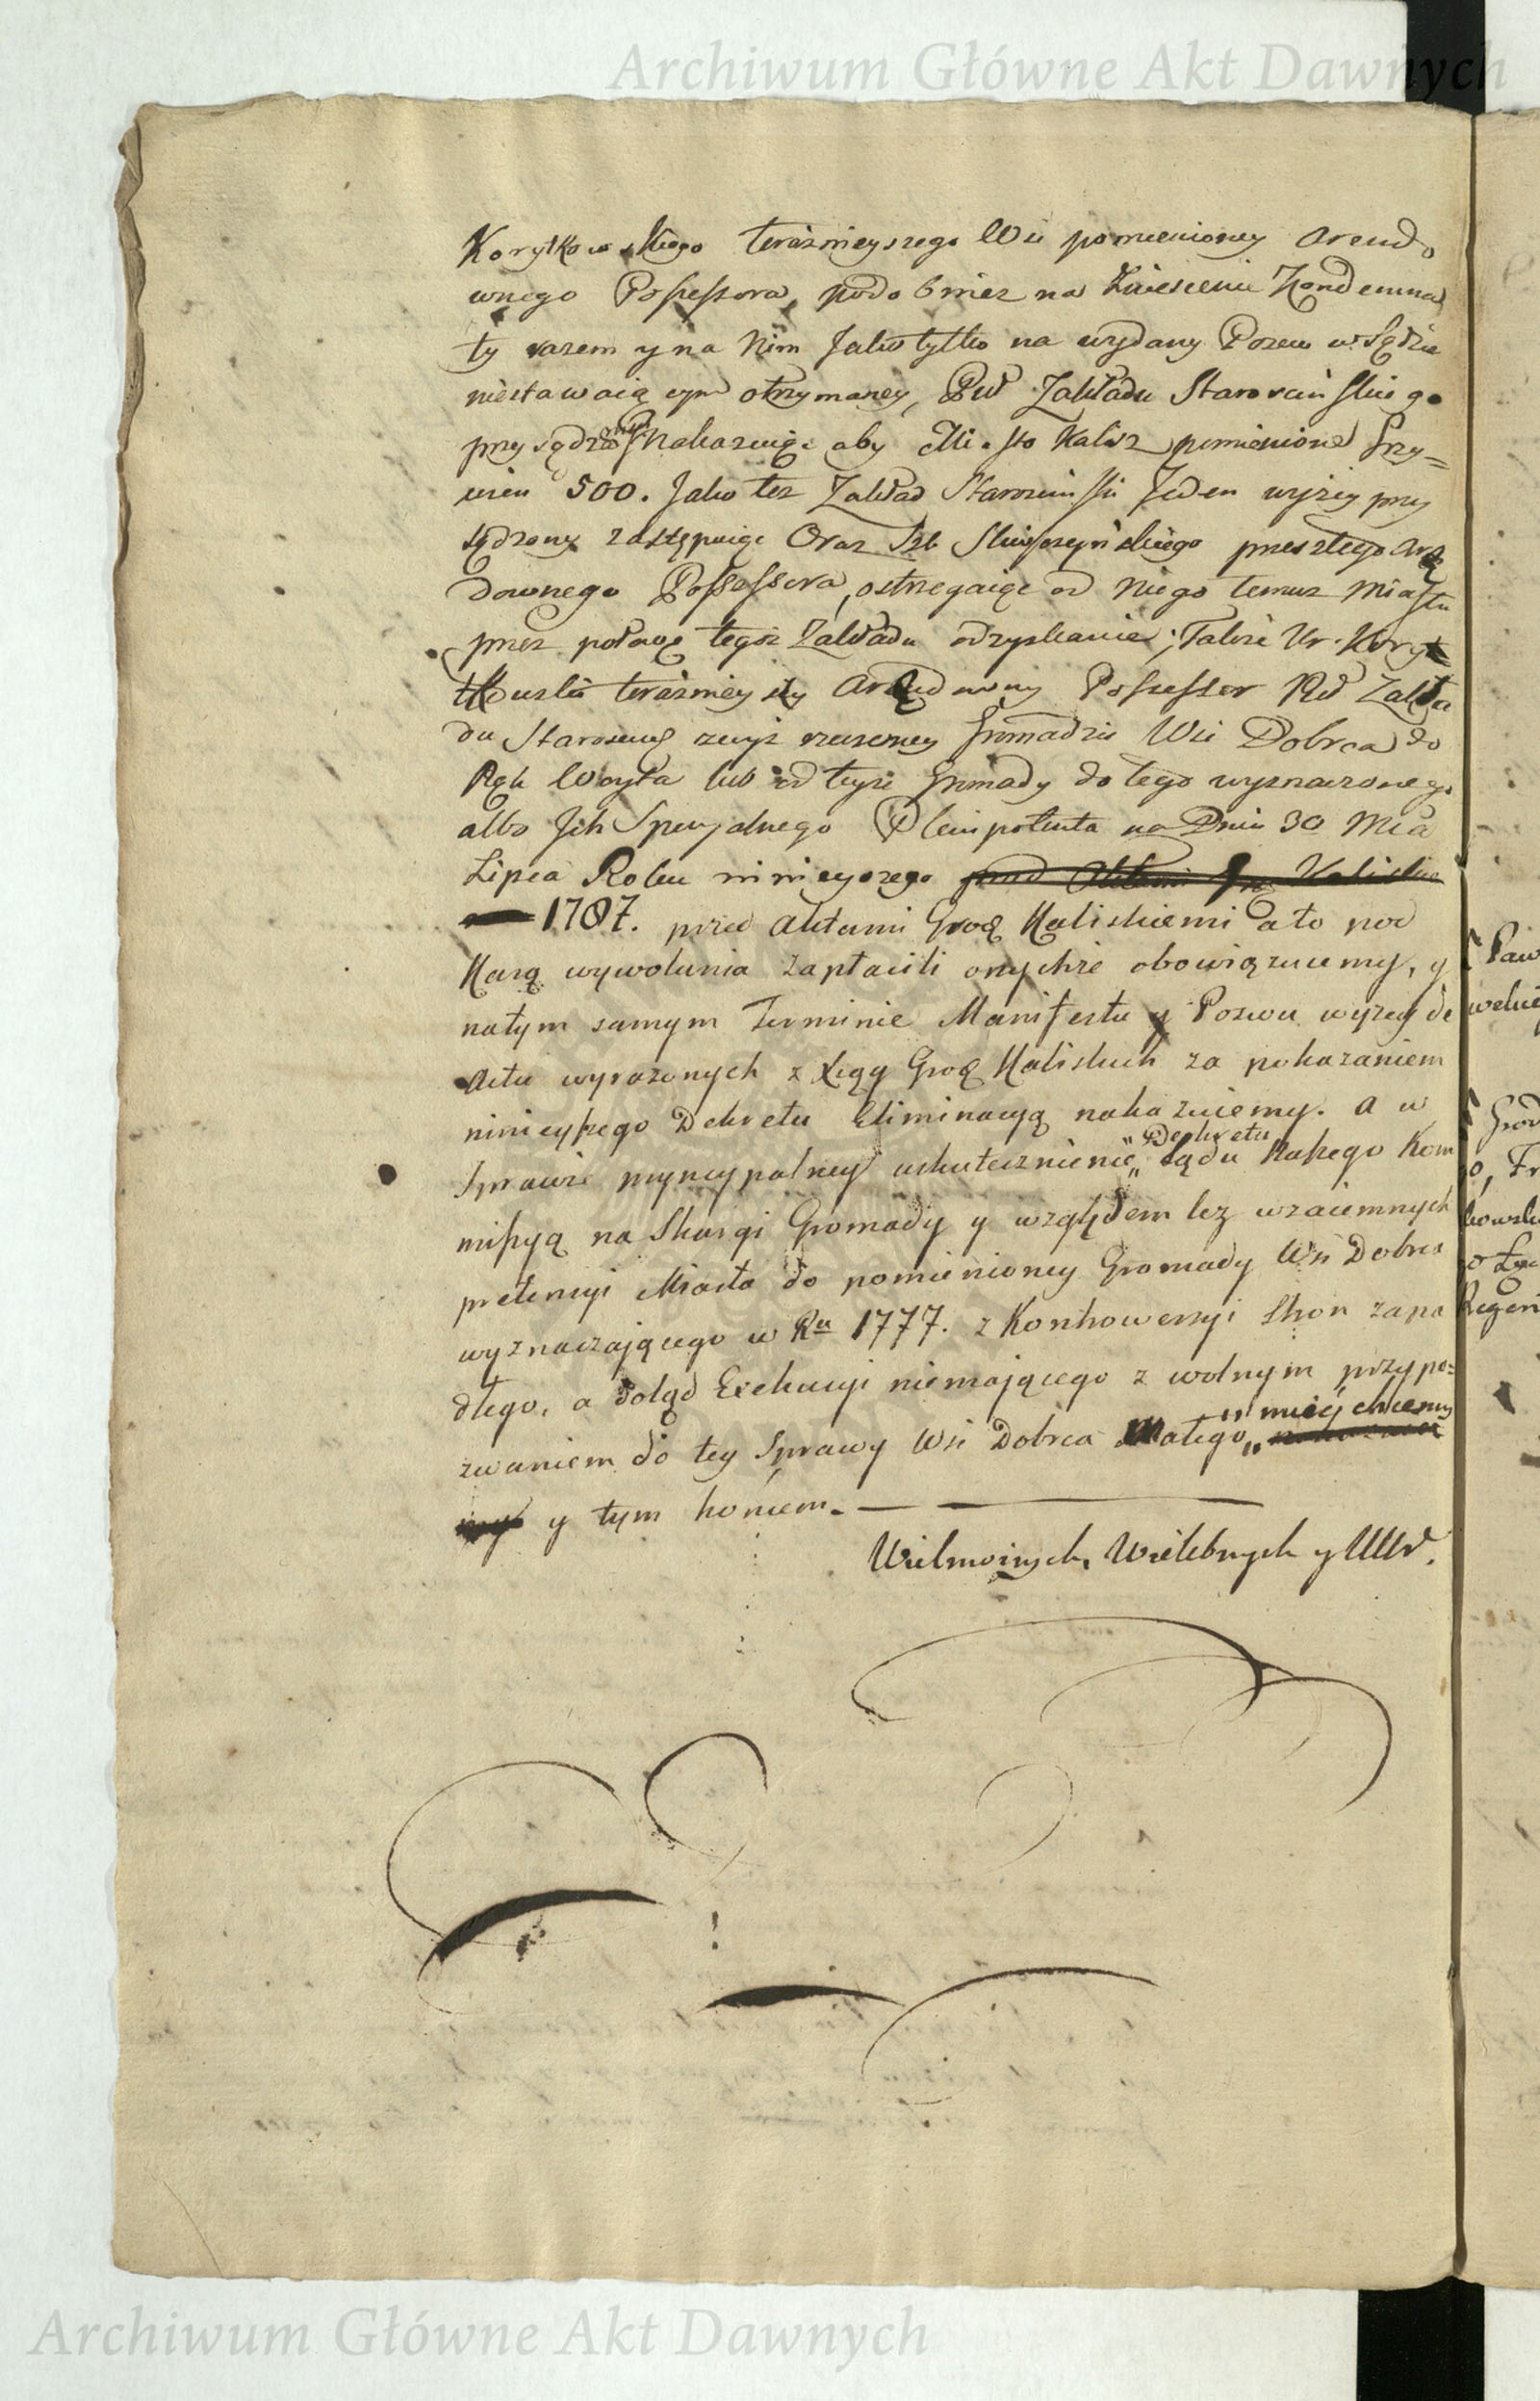 Archiwum Główne Akt Dawnych
Korytkowskiego teraznieyszego Wsi pomienioney arendo
wnego Possessora, podobniez na zniesienie Kondemna
ty razem y na Nim Jako tylko na wydany Pozew w Sądzie
niestawaiącym otrzymaney, Puł Zakładu Starościńskiego
przysądza nakazuiąc aby Miasto Kalisz pomienione Grzy=
wien 500. Jako tez Zakład Starościński Jeden wyżey przy
sądzony zastępuiąc Oraz przeszłego Arę
downego Possessora, ostrzegaiąc od Niego temuz Miastu
przez połowę tegoz Zakładu odzyskanie; Takze Ur. Koryt
tkowski teraznieyszy Arędowny Possessor Puł Zakła
du Starościń zwyż rzeczoney Gromadzie Wsi Dobrca do
Rąk Woyta lub od teyze Gromady do tego wyznaczonego
albo Jch Specyalnego Plenipotenta na Dniu 30 Mca
Lipca Roku ninieyszego przed Aktami Kaliskie
1787. przed Aktami Grodz Kaliskiemi a to pod
Karą wywołania zapłacili onychże obowiązuiemy, y
natym samym Terminie Manifestu y Pozwu wyzey de
Actu wyrazonych z Xiąg Grodz Kaliskich za pokazaniem
ninieyszego Dekretu Eliminacyą nakazuiemy. a w
Sprawie pryncypalney uskutecznienie „Dekretu„ Sądu Naszego Kom
missyą na Skargi Gromady y względem tez wzaiemnych
pretensyi Miasta do pomienioney Gromady Wsi Dobrca
wyznaczającego w Ru 1777. z Kontrowersyi Stron zapa
dłego, a dotąd Exekucyi niemającego z wolnym przypo=
zwaniem do tey Sprawy Wsi Dobrca Małego „mieć chcemy
y tym końcem. —
Wielmożnych, Wielebnych y UUr.
Archiwum Główne Akt Dawnych